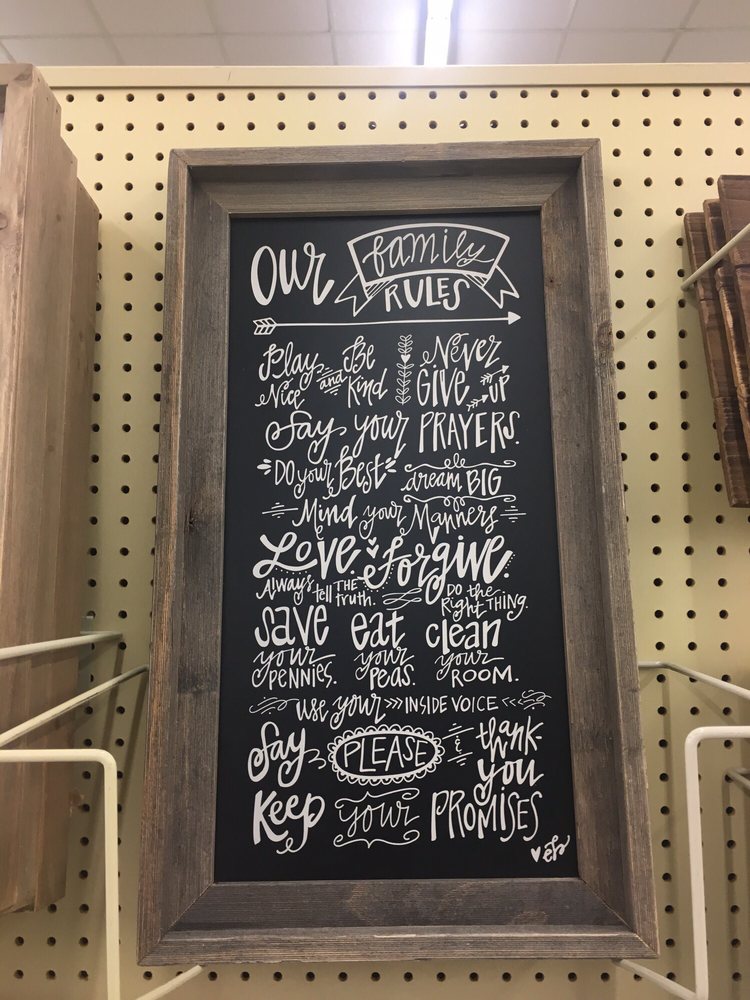 Our family RULES
Play Nice and Be Kind
Never GIVE UP
Say your PRAYERS.
Do your Best dream BIG
Mind your Manners
Love. Forgive.
Always tell THE truth. Do the Right THING.
save your PENNIES. eat your PEAS. clean your ROOM.
use your INSIDE VOICE
Say PLEASE & thank-you
Keep your PROMISES